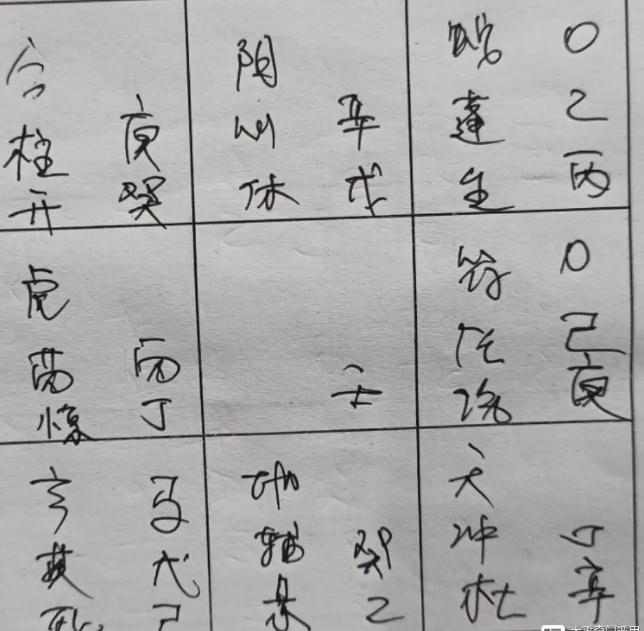 合
柱 庚
开 癸
阴
心 辛
休 戊
蛇 O
蓬 乙
生 丙
虎
芮 丙
惊 丁
壬
符 O
任 己
伤 庚
玄 马
英 戊
死 己
地
辅 癸
景 乙
天
冲 丁
杜 辛